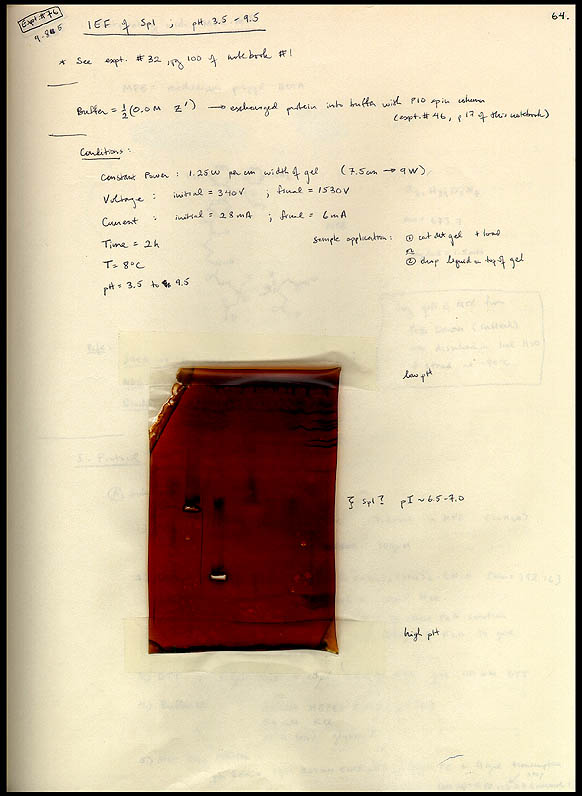 Expt. #76
9.8.85
IEF of Sp1 ; pH 3.5 - 9.5
64.
* See expt. #32, pg 100 of notebook #1
Buffer = ½(0.0 M Z') → exchanged protein into buffer with P10 spin column
(expt. #46, p 17 of this notebook)
Conditions:
Constant Power : 1.25W per cm width of gel (7.5cm → 9W)
Voltage : initial = 340V ; final = 1530V
Current : initial = 28mA ; final = 6mA
Time = 2h
T = 8°C
pH = 3.5 to 9.5
Sample application: ① cut out gel + load
or
② drop liquid on top of gel
low pH
} Sp1? pI ~ 6.5-7.0
high pH